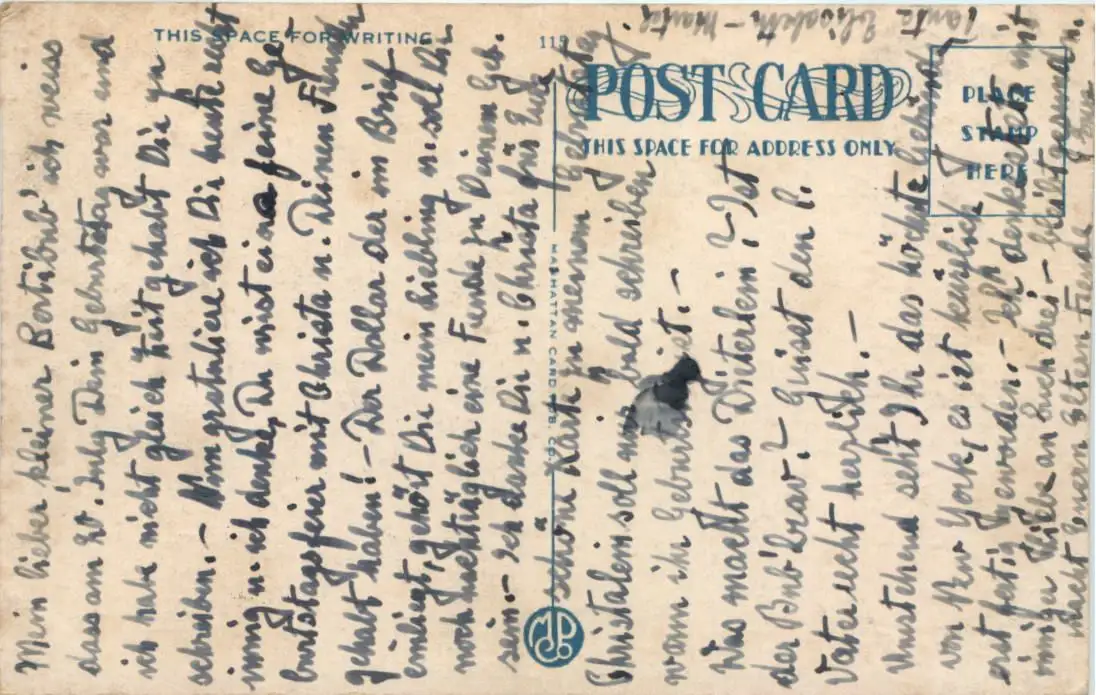 THIS SPACE FOR WRITING
115
POST CARD
THIS SPACE FOR ADDRESS ONLY
PLACE
STAMP
HERE
MANHATTAN CARD PUB. CO.
Mein lieber kleiner Bertibub' ich weiss
dass am 20. July Dein Geburtstag war und
ich habe nicht gleich Zeit gehabt Dir zu
schreiben. – Nun gratuliere ich Dir heute recht
innig u. ich denke, Du wirst eine feine Ge
burtstagsfeier mit Christa u. Deinen Freunden
gehabt haben! – Der Dollar der im Brief
einliegt, gehört Dir mein Liebling u. soll Dir
noch nachträglich eine Freude zu Deinem Geb.
sein. – Ich danke Dir u. Christa für Eure
schöne Karte zu meinem Geburtstag
Christalein soll mir bald schreiben
wann ihr Geburtstag ist. –
Was macht das Dieterlein? – Ist
der Bub' brav? – Grüsst den l.
Vater recht herzlich. –
Umstehend seht Ihr das höchste Gebäude
von New York, es ist kürzlich
erst fertig geworden. – Ich denke stets mit
inniger Liebe an Euch drei – bleibt gesund u.
macht Euern Eltern Freude Eure
Tante Elisabeth –